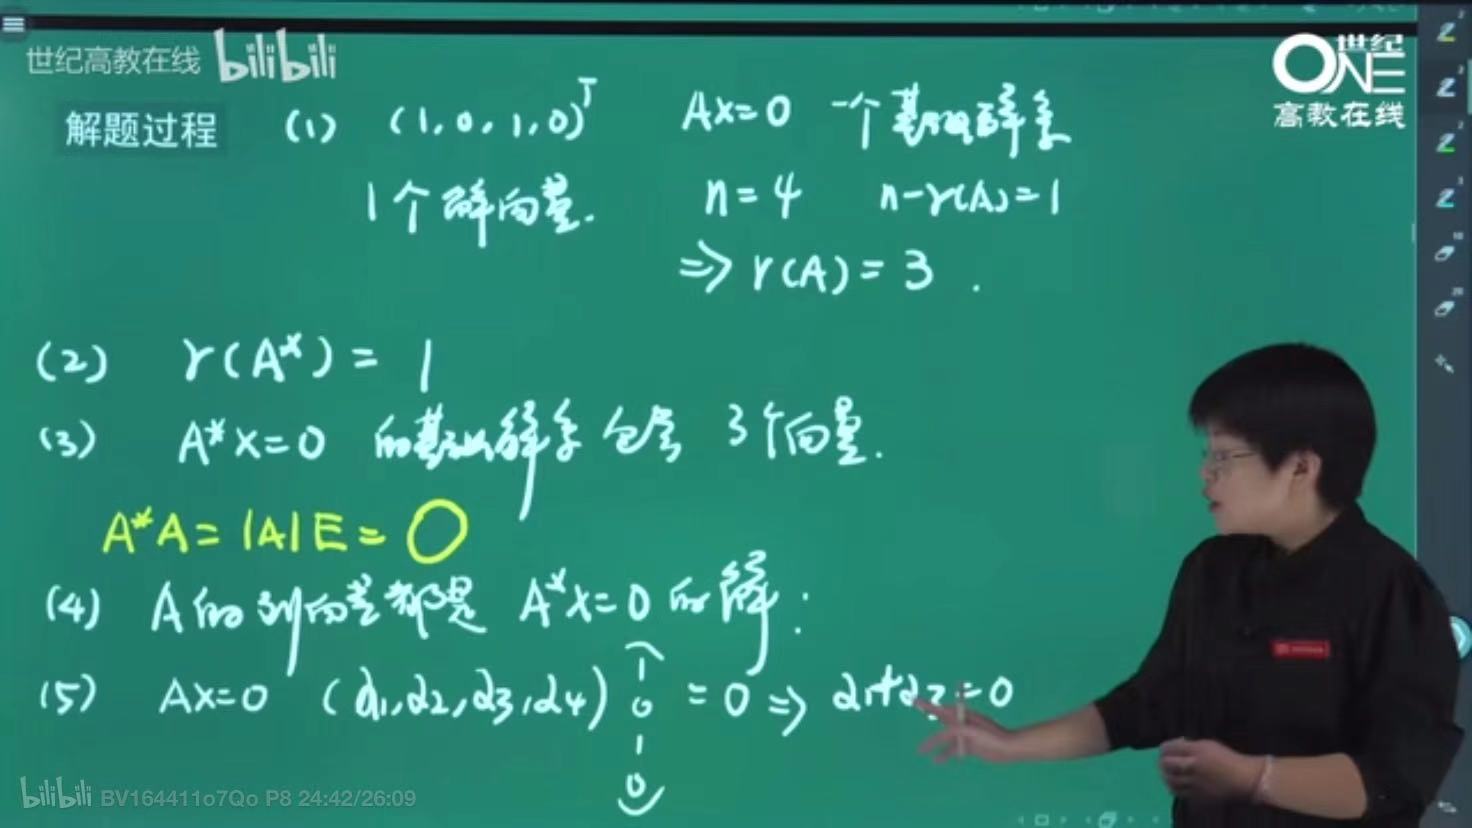 世纪高教在线 bilibili
ONE世纪
高教在线
解题过程 (1) (1,0,1,0)ᵀ AX=0 一个基础解系
1个解向量. n=4 n-r(A)=1
⇒ r(A)=3 .
(2) r(A*)=1
(3) A*X=0 的基础解系包含 3个向量.
A*A=|A|E=O
(4) A的列向量都是 A*X=0 的解:
(5) AX=0 (α₁,α₂,α₃,α₄) (1 0 1 0) =0 ⇒ α₁+α₃=0
bilibili BV164411o7Qo P8 24:42/26:09